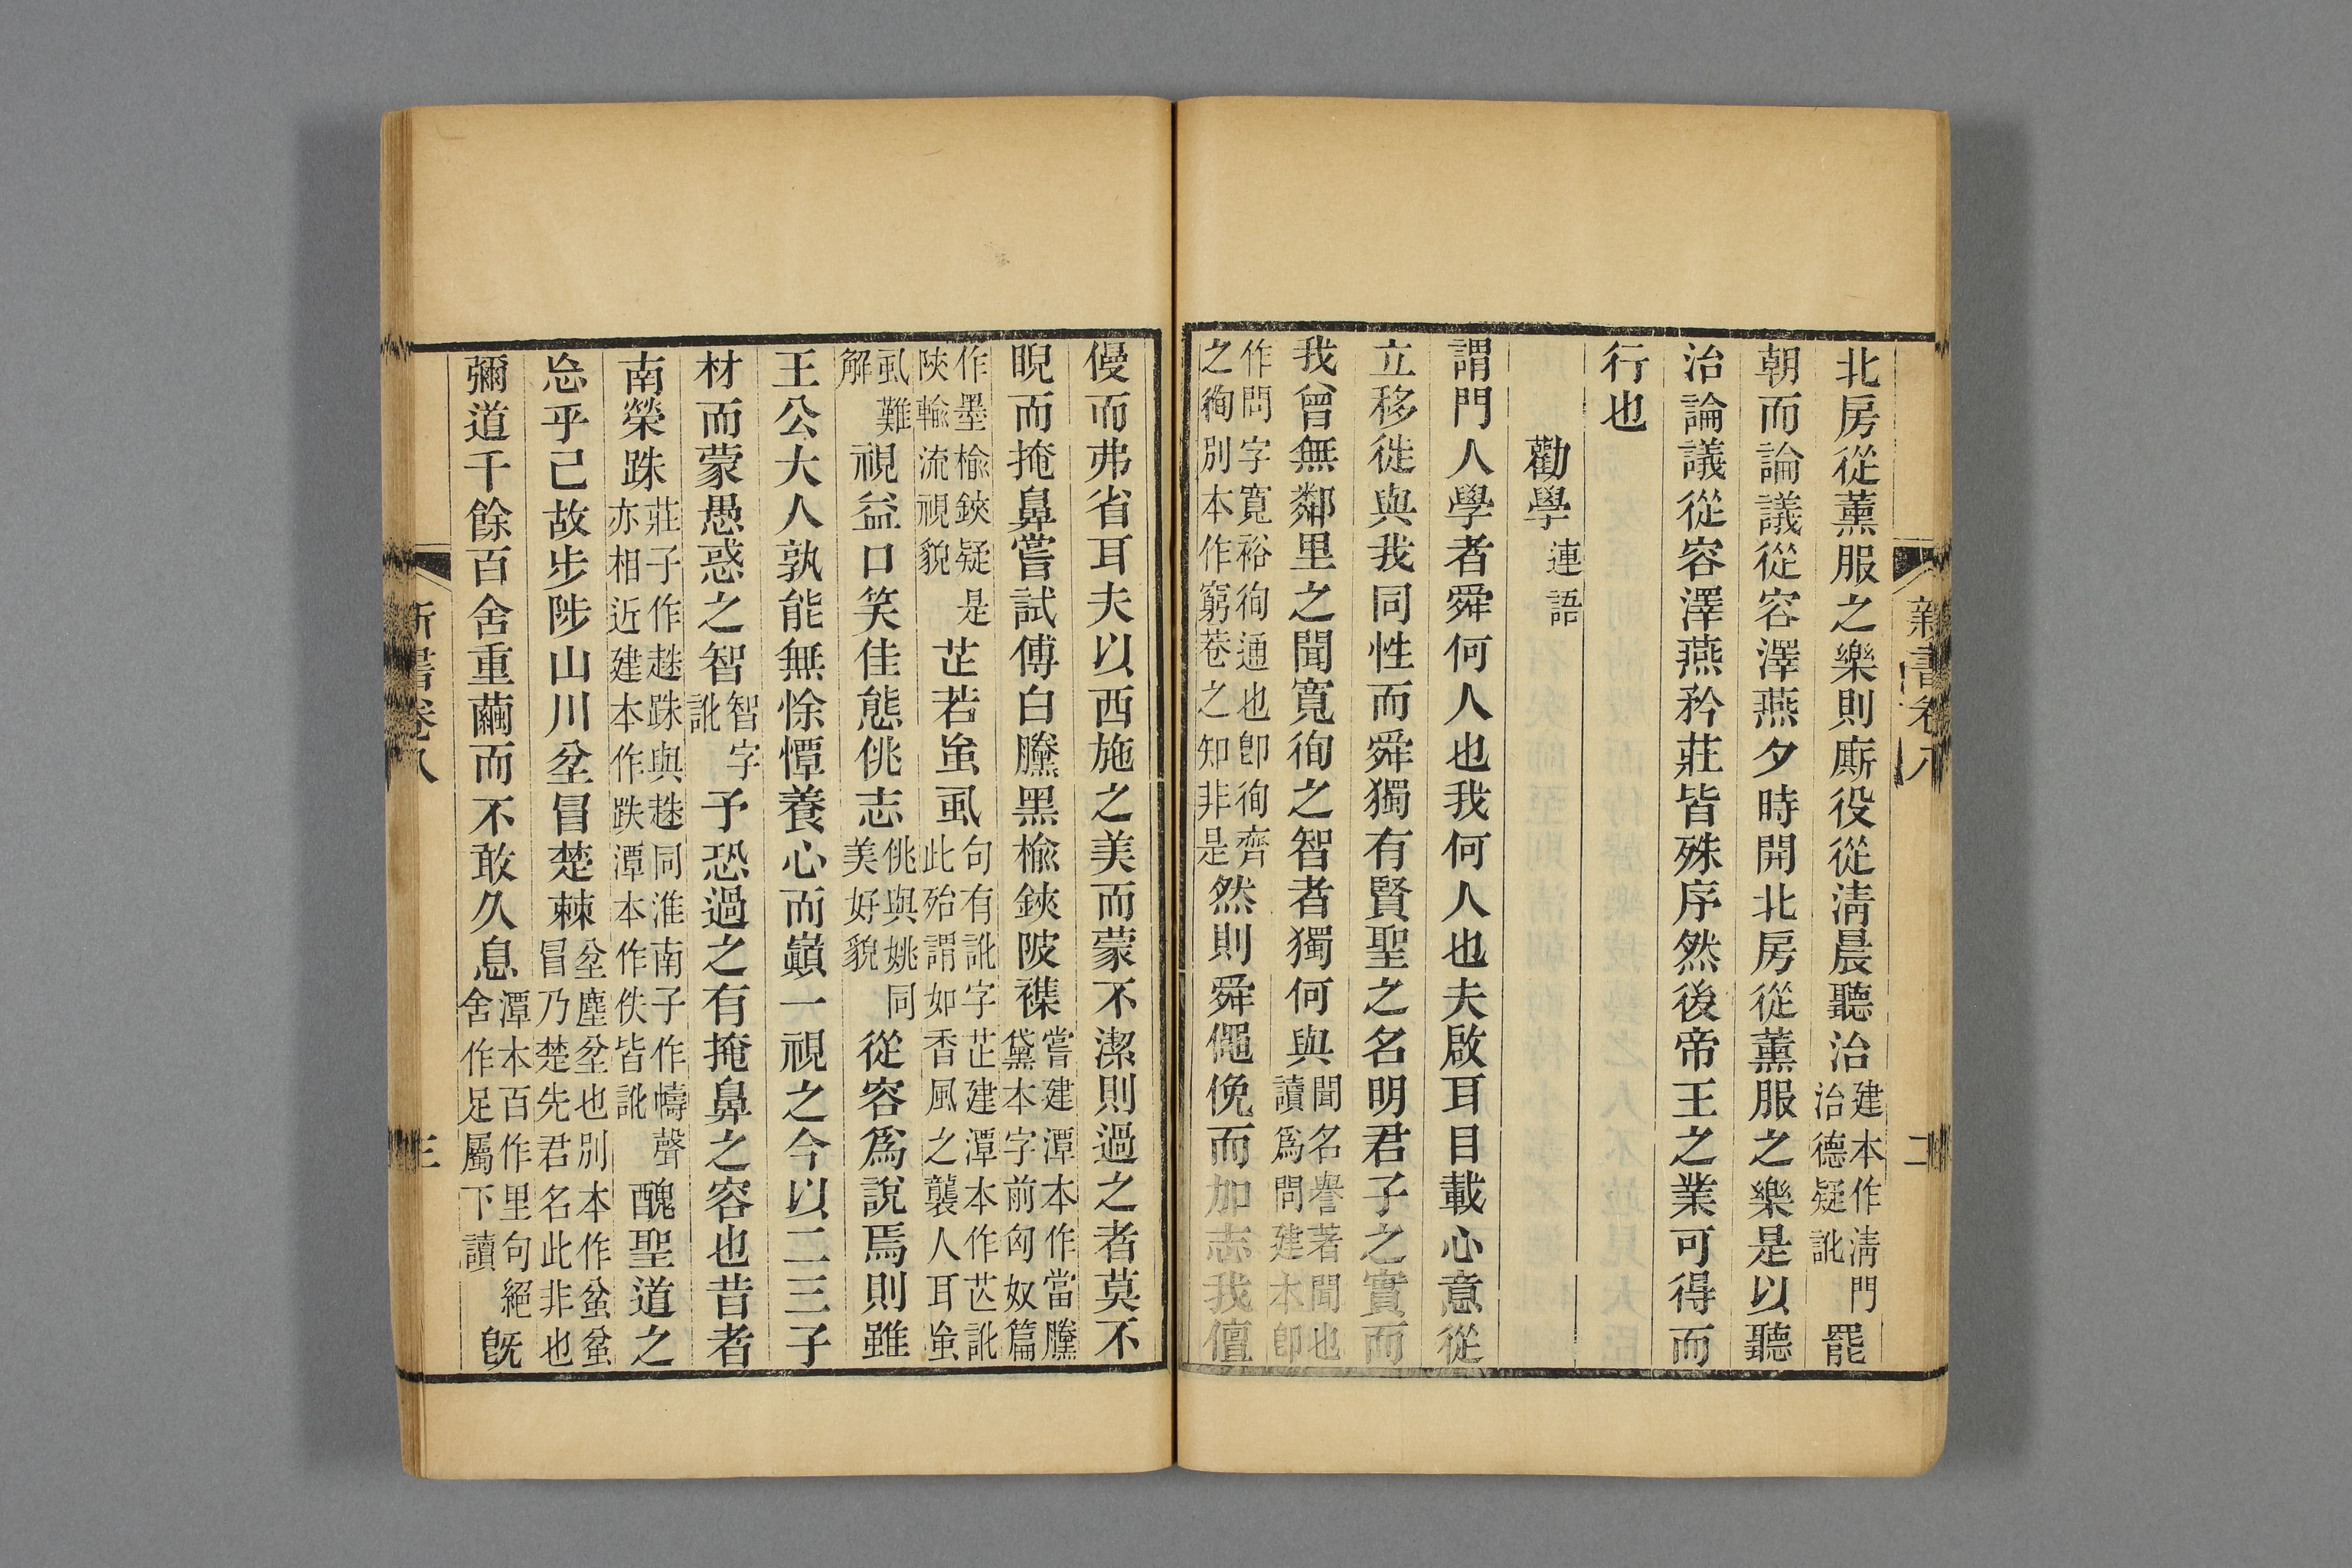 北房從薰服之樂則廝役從淸晨聽治建本作淸門治德疑訛罷
朝而論議從容澤燕夕時開北房從薰服之樂是以聽
治論議從容澤燕矜莊皆殊序然後帝王之業可得而
行也
勸學連語
謂門人學者舜何人也我何人也夫啟耳目載心意從
立移徙與我同性而舜獨有賢聖之名明君子之實而
我曾無鄰里之聞寬徇之智者獨何與聞名譽著聞也讀爲問建本卽
作問字寬裕徇通也卽徇齊之徇別本作窮巷之知非是然則舜僶俛而加志我儃
僈而弗省耳夫以西施之美而蒙不潔則過之者莫不
睨而掩鼻嘗試傅白黱黑榆鋏陂襍嘗建潭本作當黱黛本字前匈奴篇
作墨榆鋏疑是陝輸流視貌芷若䖝虱句有訛字芷建潭本作芯訛此殆謂如香風之襲人耳䖝
虱難解視益口笑佳態佻志佻與姚同美好貌從容爲說焉則雖
王公大人孰能無悇憛養心而巔一視之今以二三子
材而蒙愚惑之智智字訛予恐過之有掩鼻之容也昔者
南榮跦莊子作趎跦與趎同淮南子作幬聲亦相近建本作跌潭本作佚皆訛醜聖道之
忘乎己故步陟山川坌冒楚棘坌塵坌也別本作蚠蚠冒乃楚先君名此非也
彌道千餘百舍重繭而不敢久息潭本百作里句絕舍作足屬下讀旣
新書卷八
二
新書卷八
三